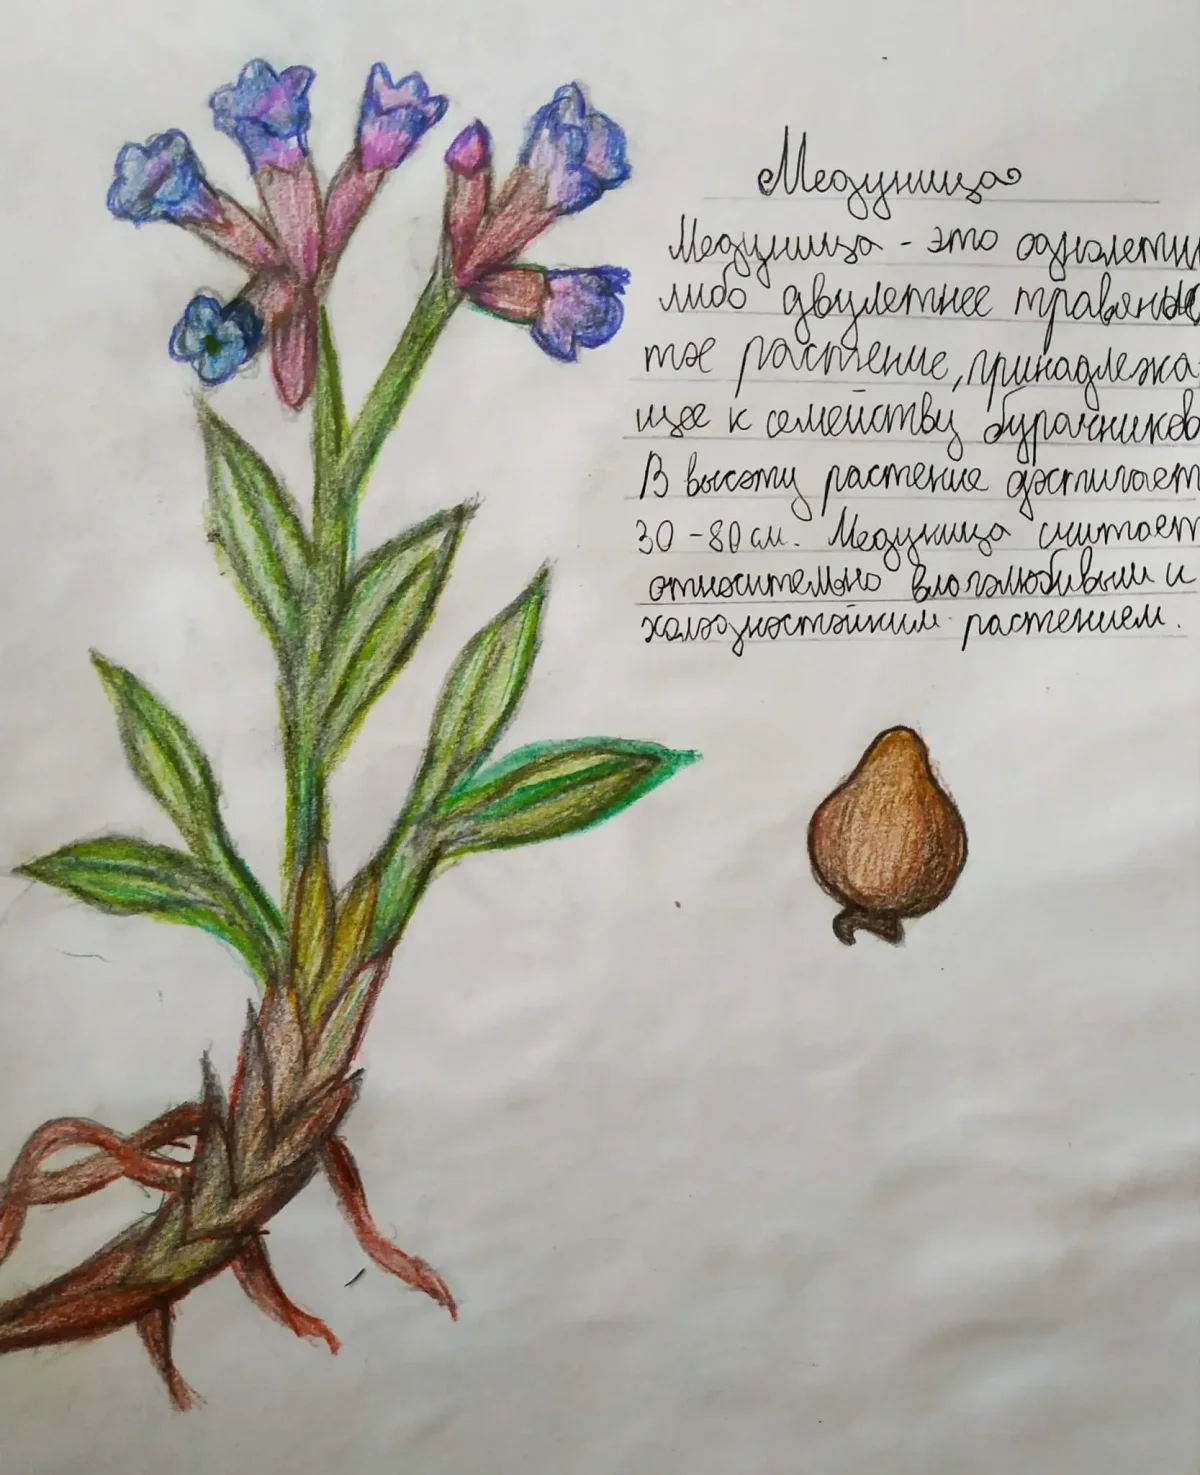 Медуница
Медуница - это однолетни
либо двулетнее травянис
тое растение, принадлежа
щее к семейству бурачников
В высоту растение достигает
30 - 80 см. Медуница считает
относительно влаголюбивым и
холодностойким растением.